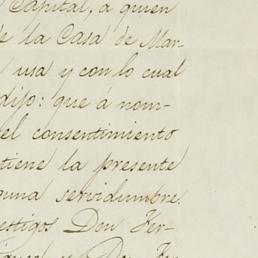 Capital, a quien
de la Casa de Mar-
usa y con lo cual
dijo: que á nom-
el consentimiento
tiene la presente
guna servidumbre.
estigos Don Fer-
y Don